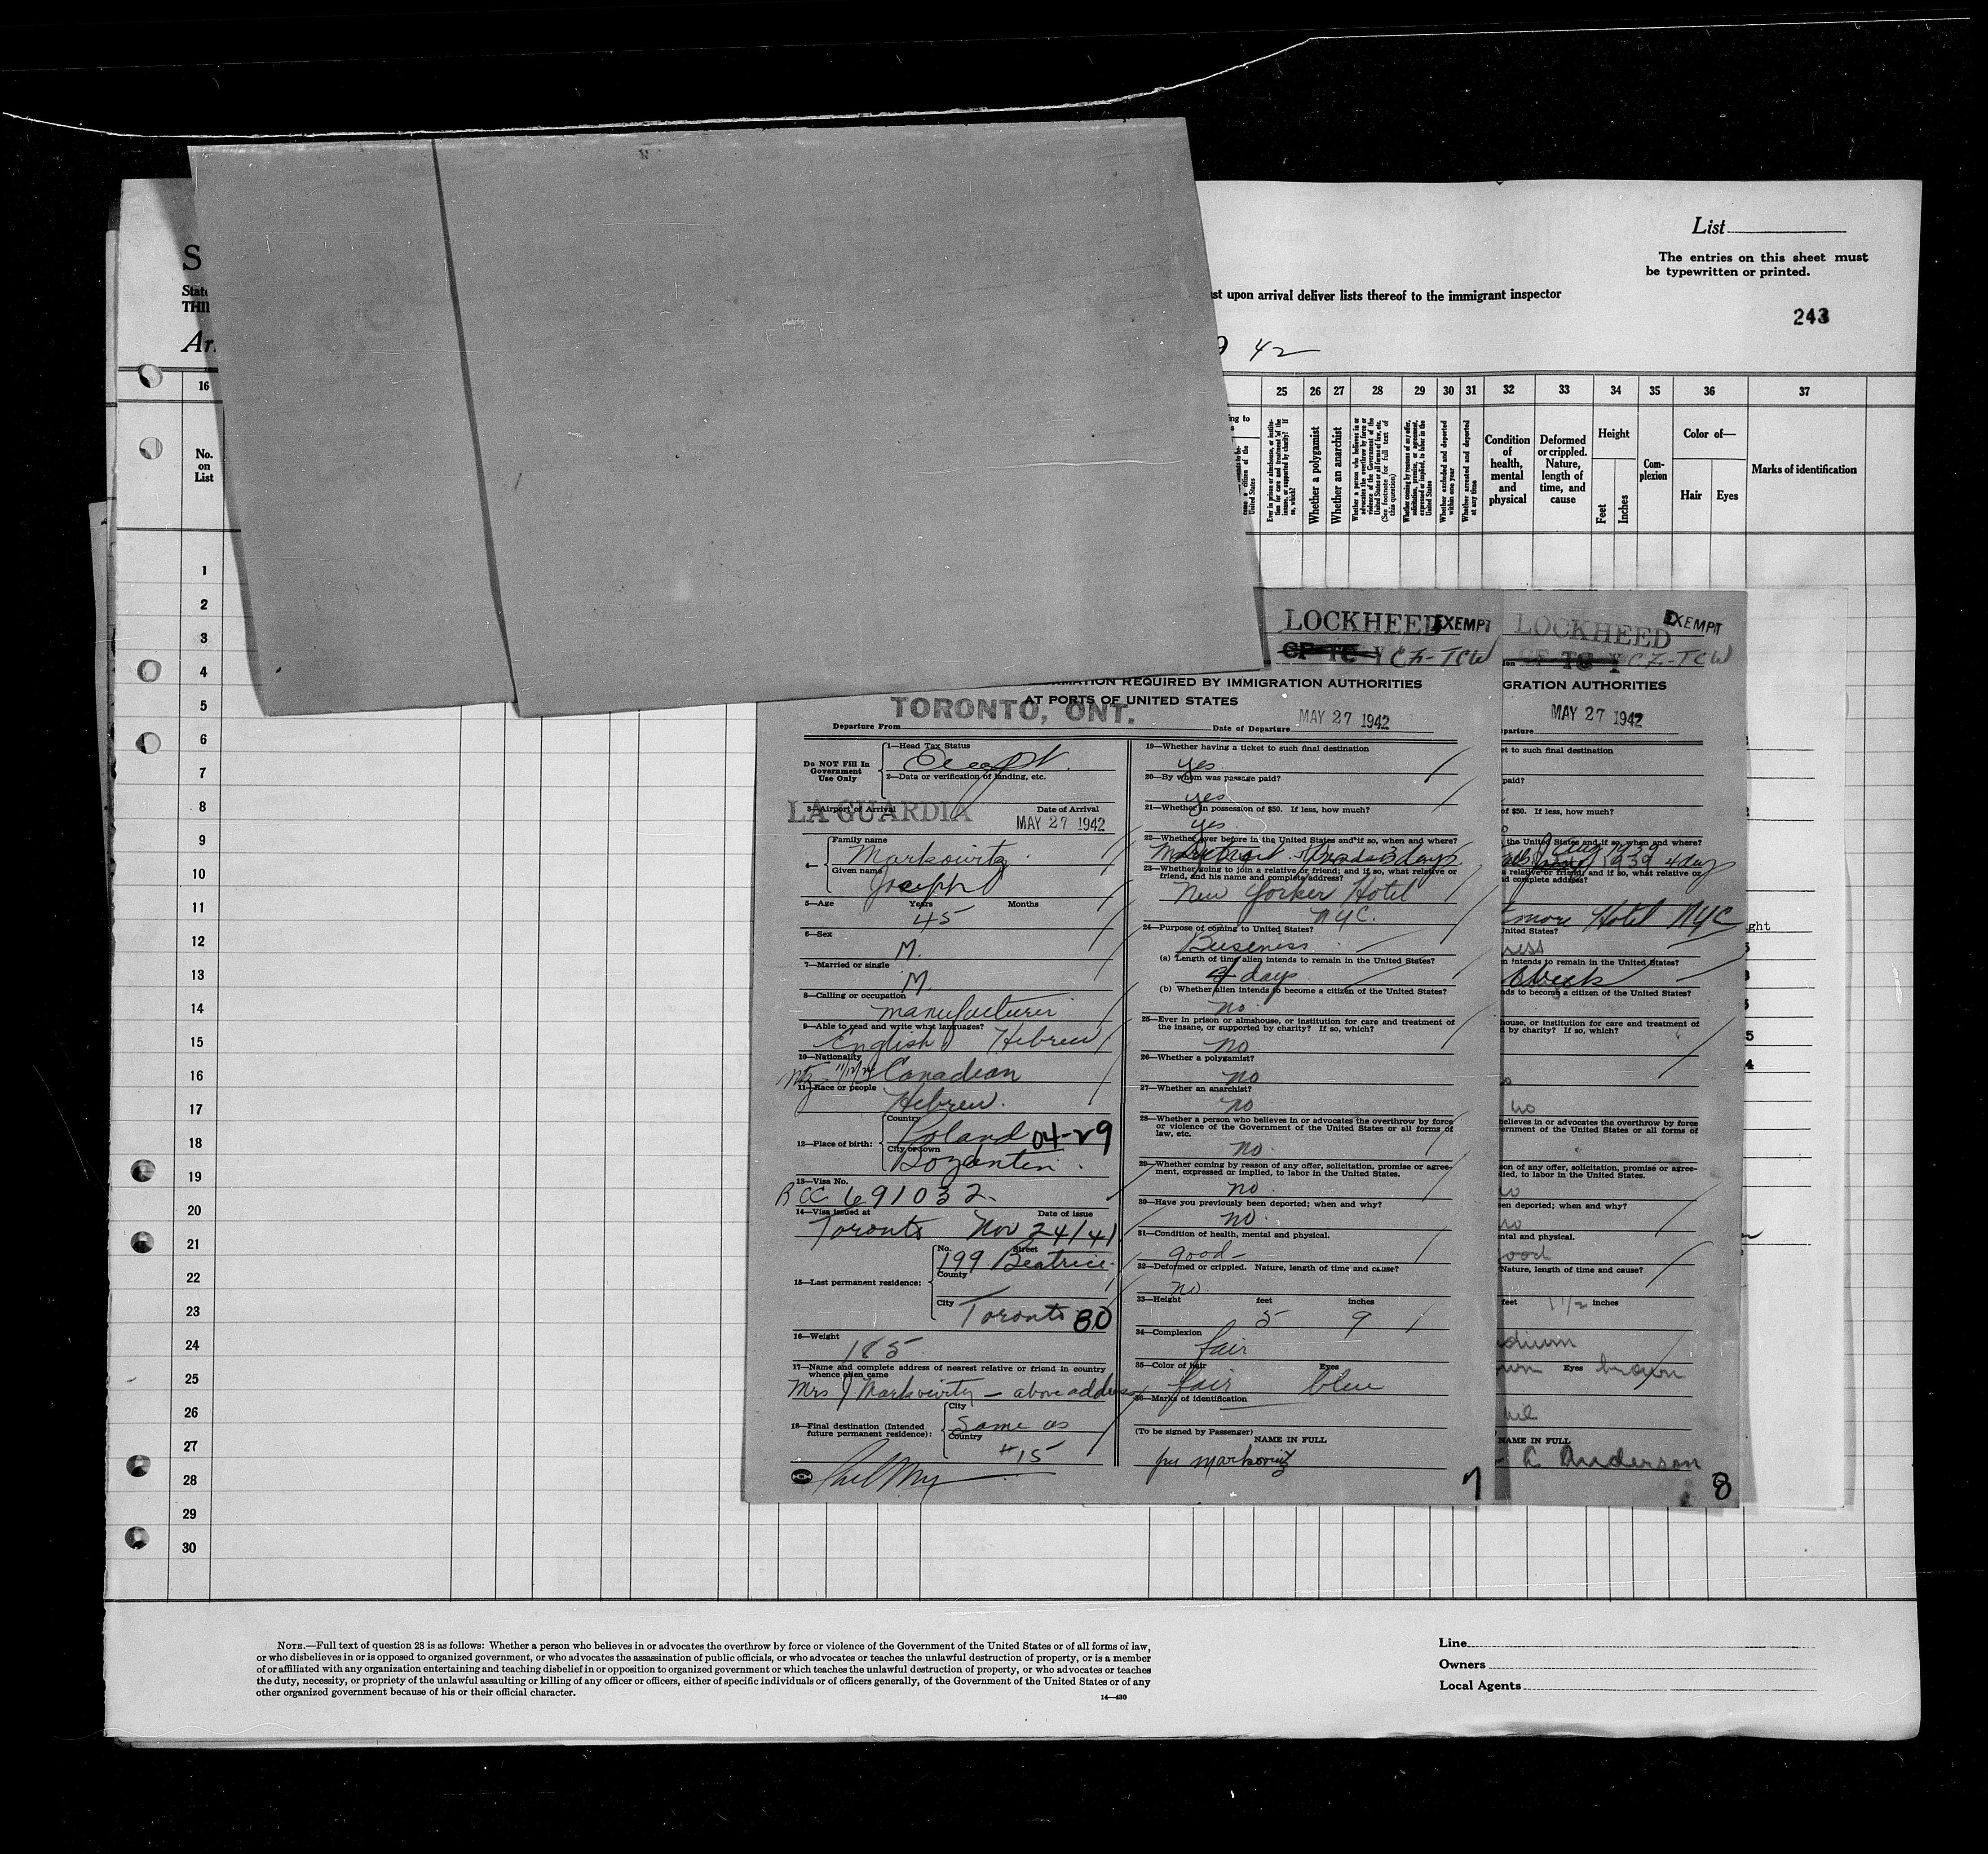 List
The entries on this sheet must
be typewritten or printed.
S
State
THI
st upon arrival deliver lists thereof to the immigrant inspector
243
Ar
42
16
25 26 27 28 29 30 31 32 33 34 35 36 37
No.
on
List
Ever in prison or almshouse, or institution for care and treatment of the insane, or supported by charity? If so, which?
Whether a polygamist
Whether an anarchist
Whether a person who believes in or advocates the overthrow by force or violence of the Government of the United States or all forms of law, etc. (See footnote for full text of this question)
Whether coming by reasons of any offer, solicitation, promise, or agreement, expressed or implied, to labor in the United States
Whether excluded and deported within one year
Whether arrested and deported at any time
Condition of health, mental and physical
Deformed or crippled. Nature, length of time, and cause
Height
Feet
Inches
Com-
plexion
Color of—
Hair
Eyes
Marks of identification
1
2
3
4
5
6
7
8
9
10
11
12
13
14
15
16
17
18
19
20
21
22
23
24
25
26
27
28
29
30
LOCKHEED EXEMPT
CF-TCW
MATION REQUIRED BY IMMIGRATION AUTHORITIES
AT PORTS OF UNITED STATES
TORONTO, ONT.
Departure From
Date of Departure MAY 27 1942
Do NOT Fill In
Government
Use Only
1—Head Tax Status
2—Data or verification of landing, etc.
3—Airport of Arrival
Date of Arrival
LA GUARDIA
MAY 27 1942
4—
Family name
Markowitz
Given name
Joseph
5—Age Years Months
45
6—Sex
M.
7—Married or single
M.
8—Calling or occupation
manufacturer
9—Able to read and write what languages?
English Hebrew
10—Nationality
Canadian
11—Race or people
Hebrew.
12—Place of birth:
Country
Poland 04-29
City or town
Bozentin
13—Visa No.
RCC 691032
14—Visa issued at Date of issue
Toronto Nov 24/41
15—Last permanent residence:
No. Street
199 Beatrice
County
City
Toronto 80
16—Weight
185
17—Name and complete address of nearest relative or friend in country
whence alien came
Mrs J Markowitz — above address
18—Final destination (Intended
future permanent residence):
City
Same as
Country
#15
19—Whether having a ticket to such final destination
yes
20—By whom was passage paid?
yes
21—Whether in possession of $50. If less, how much?
yes
22—Whether ever before in the United States and if so, when and where?
3 days
23—Whether going to join a relative or friend; and if so, what relative or
friend, and his name and complete address?
New Yorker Hotel
NYC.
24—Purpose of coming to United States?
Buseness
(a) Length of time alien intends to remain in the United States?
4 days
(b) Whether alien intends to become a citizen of the United States?
no
25—Ever in prison or almshouse, or institution for care and treatment of
the insane, or supported by charity? If so, which?
no
26—Whether a polygamist?
no
27—Whether an anarchist?
no
28—Whether a person who believes in or advocates the overthrow by force
or violence of the Government of the United States or all forms of
law, etc.
no.
29—Whether coming by reason of any offer, solicitation, promise or agree-
ment, expressed or implied, to labor in the United States.
no.
30—Have you previously been deported; when and why?
no.
31—Condition of health, mental and physical.
good—
32—Deformed or crippled. Nature, length of time and cause?
no.
33—Height feet inches
5 9
34—Complexion
fair
35—Color of hair Eyes
fair blue
36—Marks of identification
(To be signed by Passenger)
NAME IN FULL
markovitz
7
LOCKHEED
EXEMPT
CF-TCW
GRATION AUTHORITIES
MAY 27 1942
parture
et to such final destination
paid?
of $50. If less, how much?
the United States and if so, when and where?
1939 4 days
a relative or friend; and if so, what relative or
d complete address?
more Hotel NYC
United States?
ness
n intends to remain in the United States?
week
ds to become a citizen of the United States?
house, or institution for care and treatment of
by charity? If so, which?
no
believes in or advocates the overthrow by force
ernment of the United States or all forms of
son of any offer, solicitation, promise or agree-
lied, to labor in the United States.
no
en deported; when and why?
no
ntal and physical.
good
Nature, length of time and cause?
feet 1 1/2 inches
dium
Eyes brown
nil
NAME IN FULL
C Anderson
8
ght
NOTE.—Full text of question 28 is as follows: Whether a person who believes in or advocates the overthrow by force or violence of the Government of the United States or of all forms of law,
or who disbelieves in or is opposed to organized government, or who advocates the assassination of public officials, or who advocates or teaches the unlawful destruction of property, or is a member
of or affiliated with any organization entertaining and teaching disbelief in or opposition to organized government or which teaches the unlawful destruction of property, or who advocates or teaches
the duty, necessity, or propriety of the unlawful assaulting or killing of any officer or officers, either of specific individuals or of officers generally, of the Government of the United States or of any
other organized government because of his or their official character.
14—430
Line
Owners
Local Agents